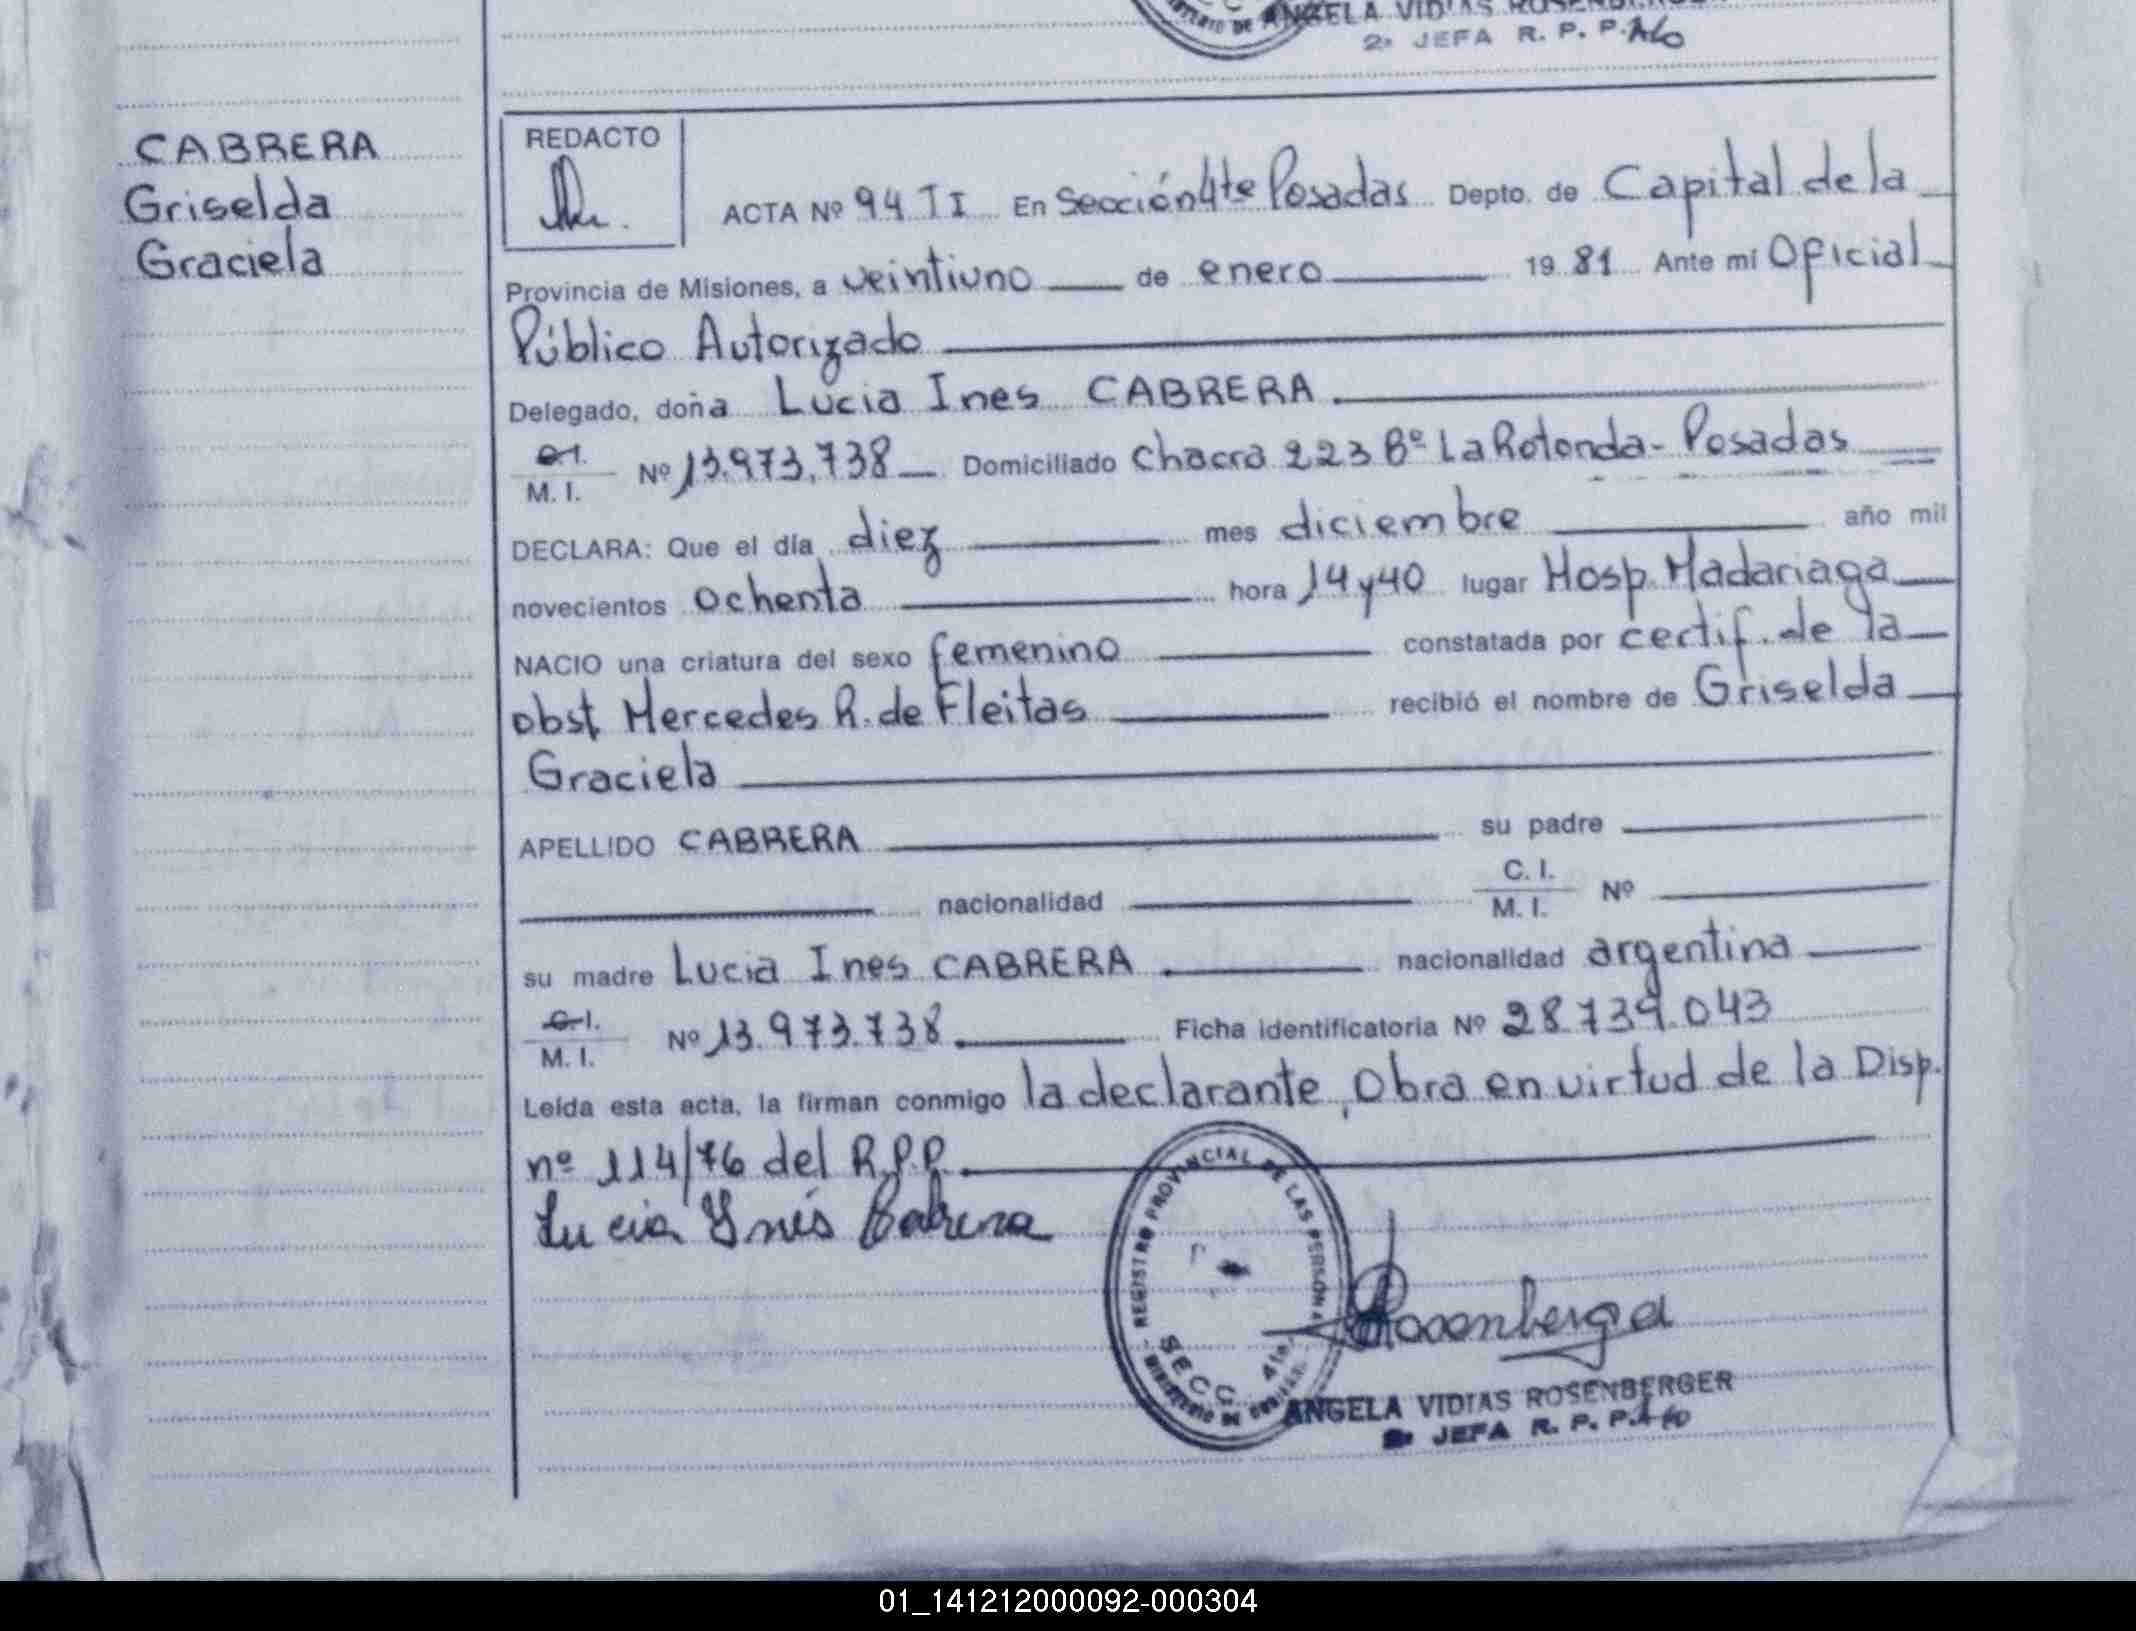 ANGELA VIDIAS ROSENBERGER
2ª JEFA R. P. P.
CABRERA
Griselda
Graciela
REDACTO
ACTA Nº 94 T I En Sección 4ta Posadas Depto. de Capital de la
Provincia de Misiones, a veintiuno de enero 19 81 Ante mí Oficial
Público Autorizado
Delegado, doña Lucia Ines CABRERA
C.I.
M. I. Nº 13.973.738 Domiciliado Chacra 223 Bº La Rotonda - Posadas
DECLARA: Que el día diez mes diciembre año mil
novecientos ochenta hora 14 y 40 lugar Hosp. Madariaga
NACIO una criatura del sexo femenino constatada por certif. de la
obst Mercedes R. de Fleitas recibió el nombre de Griselda
Graciela
APELLIDO CABRERA su padre
nacionalidad C. I.
M. I. Nº
su madre Lucia Ines CABRERA nacionalidad argentina
C.I.
M. I. Nº 13.973.738 Ficha identificatoria Nº 28.739.043
Leída esta acta, la firman conmigo la declarante, Obra en virtud de la Disp.
nº 114/76 del R.P.P.
Lucia Inés Cabrera
REGISTRO PROVINCIAL DE LAS PERSONAS
SECC. 4ta.
MINISTERIO DE
Rosenberger
ANGELA VIDIAS ROSENBERGER
2ª JEFA R. P. P.
01_141212000092-000304